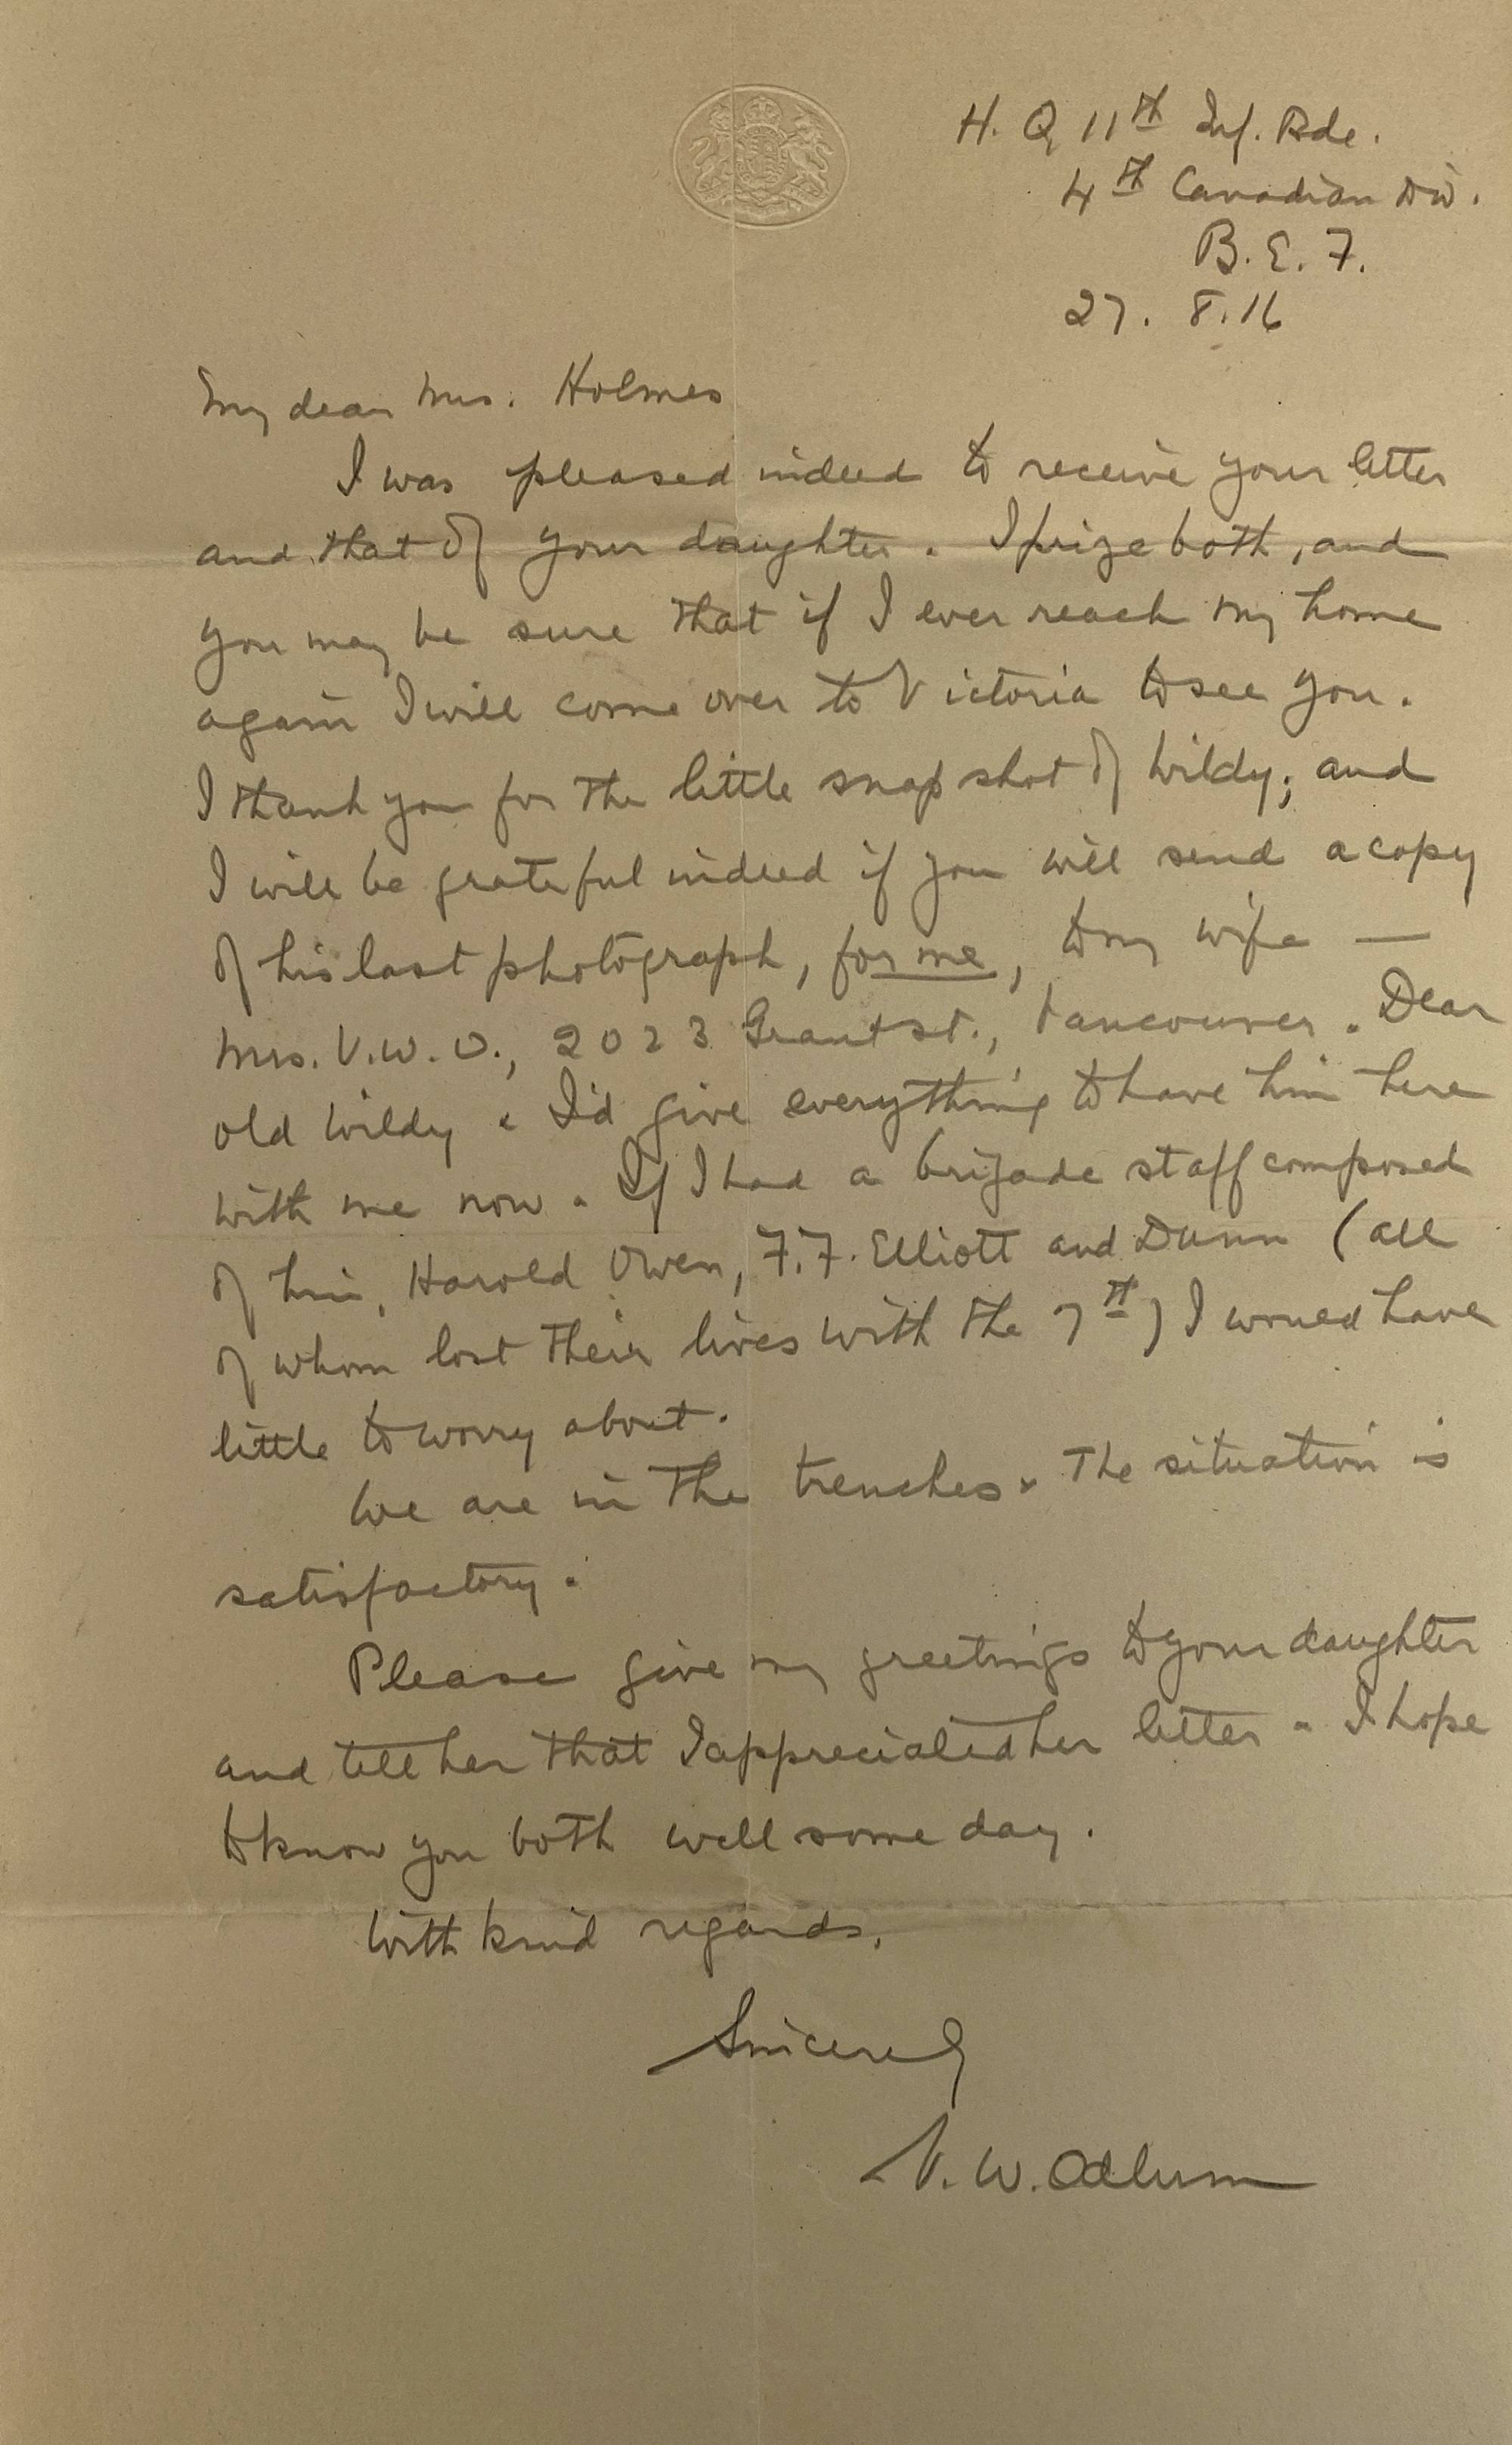 H. Q. 11th Inf. Bde.
4th Canadian Div.
B. E. F.
27. 8. 16
My dear Mrs. Holmes
I was pleased indeed to receive your letter
and that of your daughter. I prize both, and
you may be sure that if I ever reach my home
again I will come over to Victoria to see you.
I thank you for the little snap shot of Wildy; and
I will be grateful indeed if you will send a copy
of his last photograph, for me, to my wife —
Mrs. V. W. O., 2023 Grant St., Vancouver. Dear
old Wildy. I'd give everything to have him here
with me now. If I had a brigade staff composed
of him, Harold Owen, F. F. Elliott and Dunn (all
of whom lost their lives with the 7th) I would have
little to worry about.
We are in the trenches. The situation is
satisfactory.
Please give my greetings to your daughter
and tell her that I appreciated her letter. I hope
to know you both well some day.
With kind regards,
Sincerely
V. W. Odlum